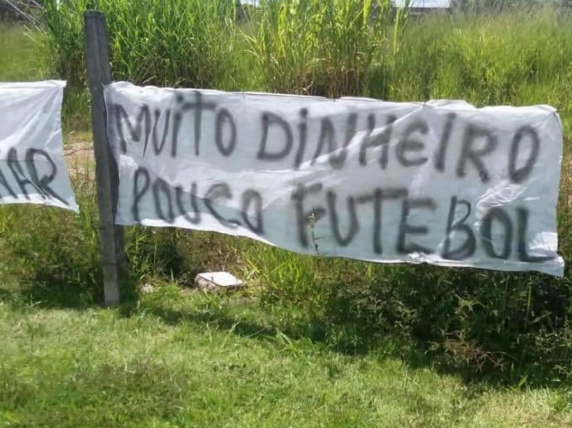 MUITO DINHEIRO
POUCO FUTEBOL